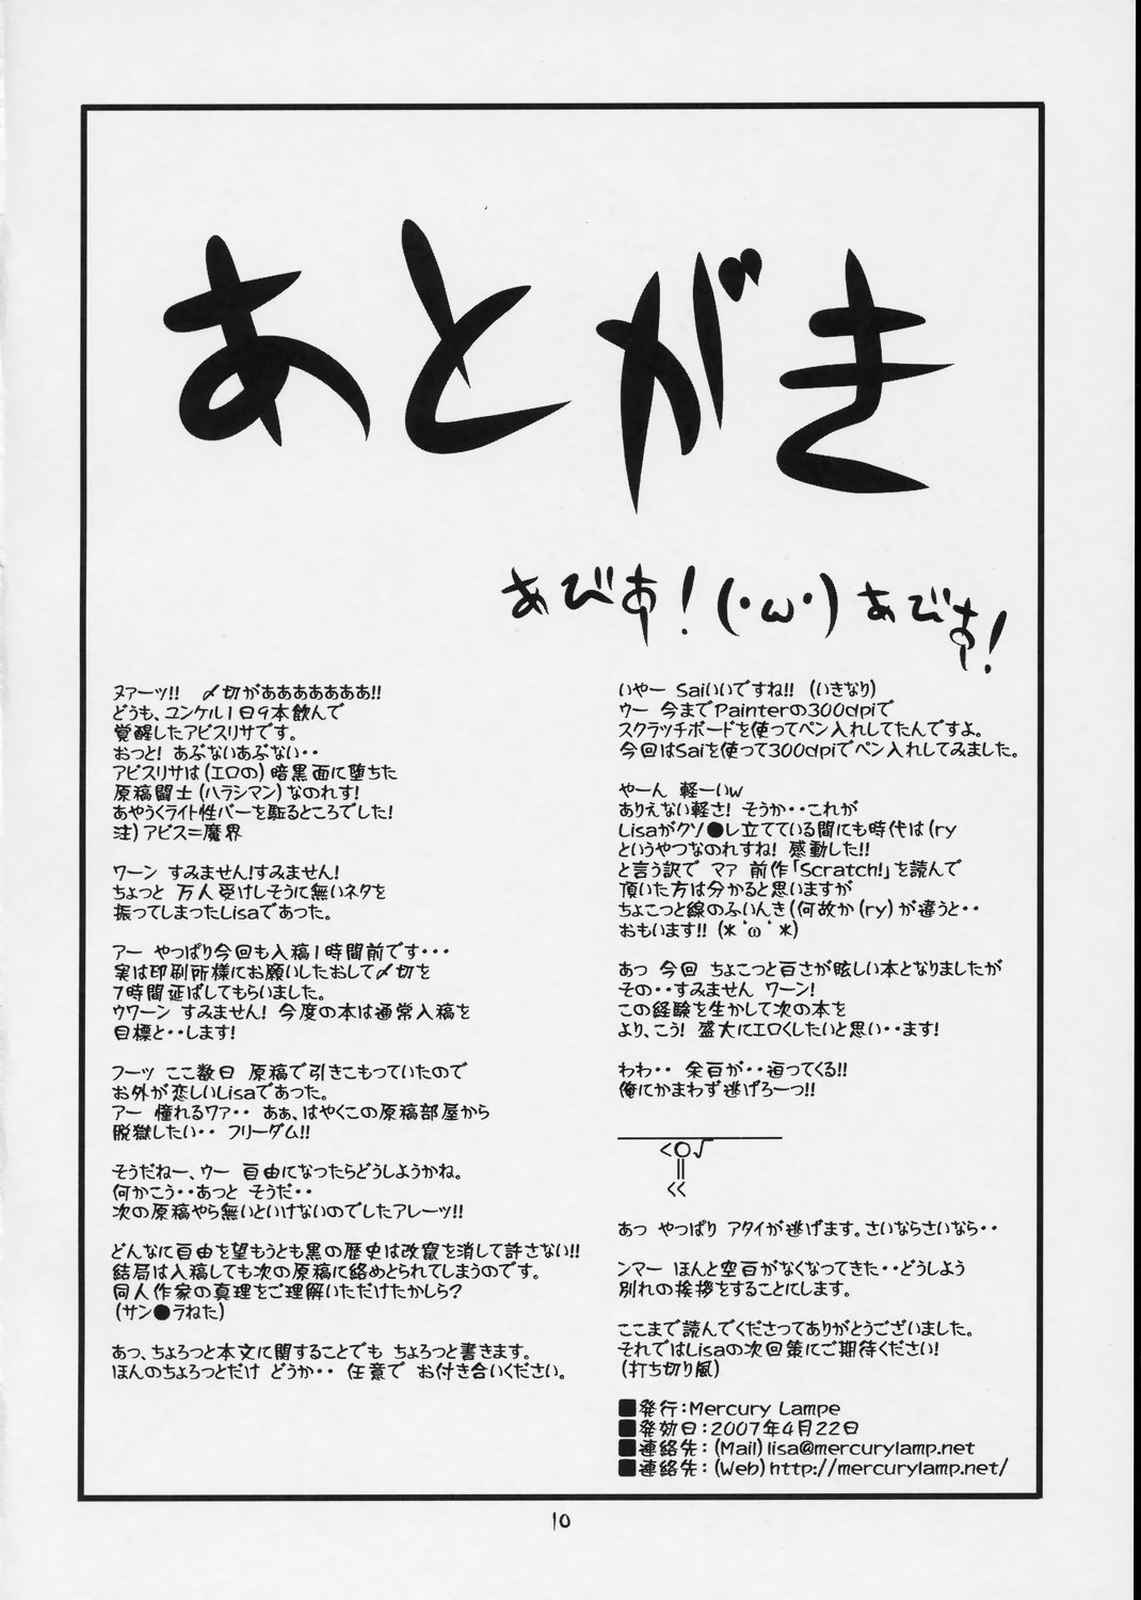 あとがき
あびす！(・ω・)あびす！
ヌァーッ!!　〆切がああああああ!!
どうも、ユンケル1日9本飲んで
覚醒したアビスリサです。
おっと! あぶないあぶない・・
アビスリサは(エロの)暗黒面に堕ちた
原稿闘士(ハラシマン)なのれす!
あやうくライト性バーを駈るところでした!
注)アビス＝魔界
ワーン すみません!すみません!
ちょっと 万人受けしそうに無いネタを
振ってしまったLisaであった。
アー やっぱり今回も入稿1時間前です・・・
実は印刷所様にお願いしたおして〆切を
7時間延ばしてもらいました。
ウワーン すみません! 今度の本は通常入稿を
目標と・・します!
フーッ ここ数日 原稿で引きこもっていたので
お外が恋しいLisaであった。
アー 憧れるワァ・・ あぁ、はやくこの原稿部屋から
脱獄したい・・ フリーダム!!
そうだねー、ウー 自由になったらどうしようかね。
何かこう・・あっと そうだ・・
次の原稿やら無いといけないのでしたアレーッ!!
どんなに自由を望もうとも黒の歴史は改竄を消して許さない!!
結局は入稿しても次の原稿に絡めとられてしまうのです。
同人作家の真理をご理解いただけたかしら?
(サン●ラねた)
あっ、ちょろっと本文に関することでも ちょろっと書きます。
ほんのちょろっとだけ どうか・・ 任意で お付き合いください。
いやー Saiいいですね!! (いきなり)
ウー 今までPainterの300dpiで
スクラッチボードを使ってペン入れしてたんですよ。
今回はSaiを使って300dpiでペン入れしてみました。
やーん 軽ーいw
ありえない軽さ! そうか・・これが
Lisaがクソ●レ立てている間にも時代は(ry
というやつなのれすね! 感動した!!
と言う訳で マァ 前作「Scratch!」を読んで
頂いた方は分かると思いますが
ちょこっと線のふいんき(何故か(ry)が違うと・・
おもいます!! (*'ω'*)
あっ 今回 ちょこっと白さが眩しい本となりましたが
その・・すみません ワーン!
この経験を生かして次の本を
より、こう! 盛大にエロくしたいと思い・・ます!
わわ・・ 余白が・・迫ってくる!!
俺にかまわず逃げろーっ!!
<○√
‖
<<
あっ やっぱり アタイが逃げます。さいならさいなら・・
ンマー ほんと空白がなくなってきた・・どうしよう
別れの挨拶をすることにします。
ここまで読んでくださってありがとうございました。
それではLisaの次回策にご期待ください!
(打ち切り風)
■発行：Mercury Lampe
■発効日：2007年4月22日
■連絡先：(Mail)lisa@mercurylamp.net
■連絡先：(Web)http://mercurylamp.net/
10